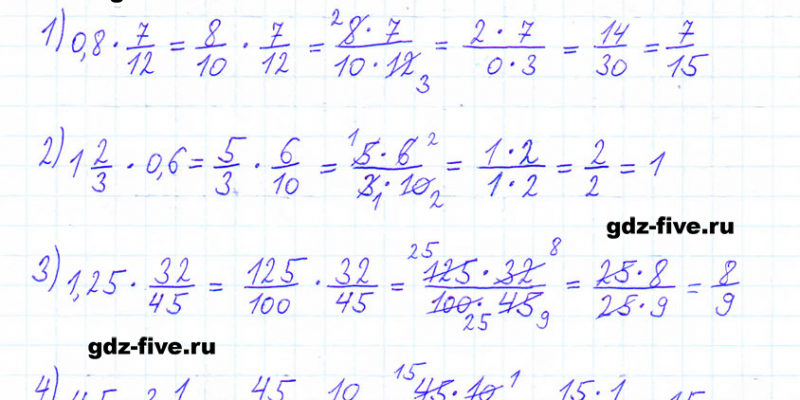 1) 0,8 · 7/12 = 8/10 · 7/12 = 2 8 · 7 / 10 · 12 3 = 2 · 7 / 0 · 3 = 14/30 = 7/15
2) 1 2/3 · 0,6 = 5/3 · 6/10 = 1 5 · 6 2 / 3 1 · 10 2 = 1 · 2 / 1 · 2 = 2/2 = 1
gdz-five.ru
3) 1,25 · 32/45 = 125/100 · 32/45 = 25 125 · 32 8 / 100 · 45 25 9 = 25 · 8 / 25 · 9 = 8/9
gdz-five.ru
4) 45 10 15 45 · 10 1 15 · 1 15